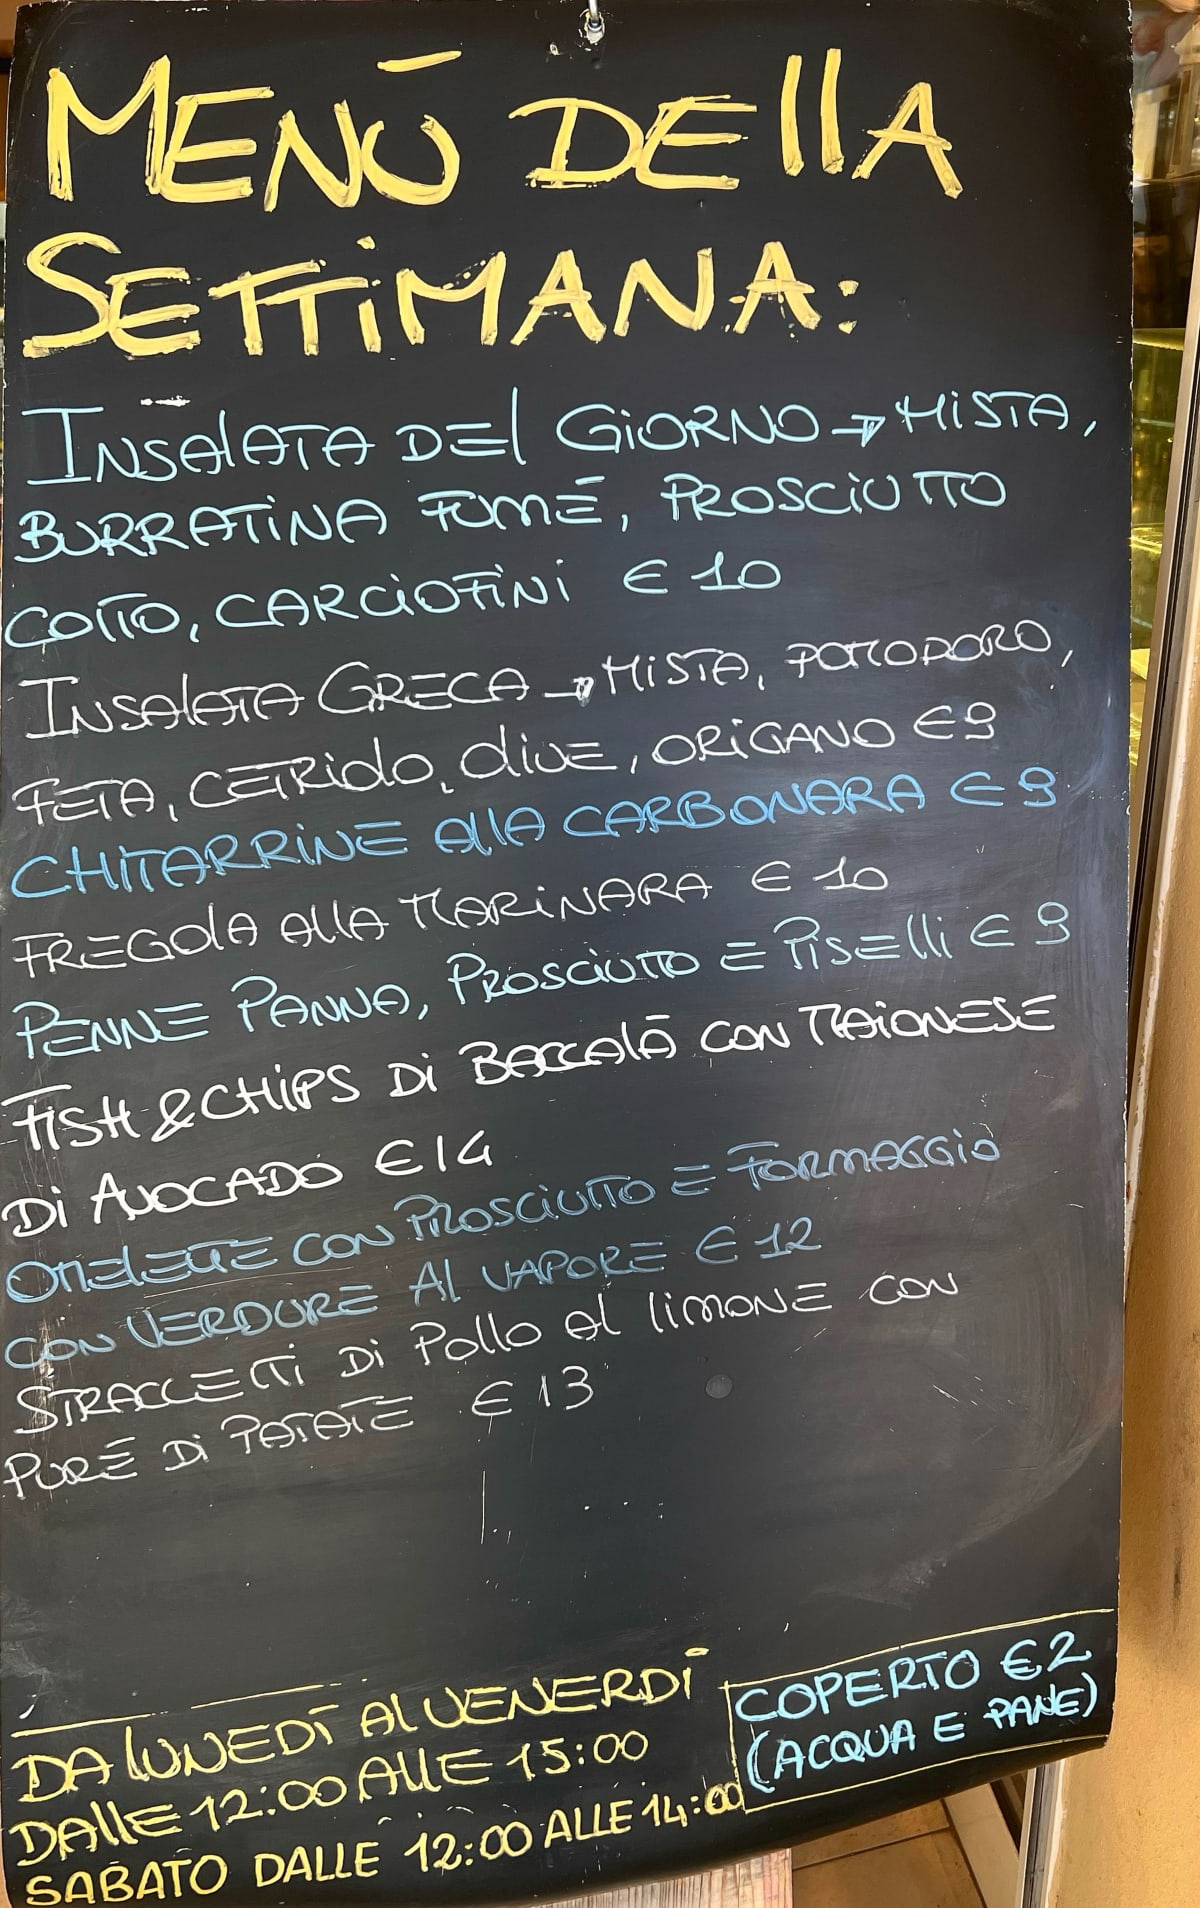 MENÙ DELLA
SETTIMANA:
INSALATA DEL GIORNO → MISTA,
BURRATINA FUMÉ, PROSCIUTTO
COTTO, CARCIOFINI € 10
INSALATA GRECA → MISTA, POMODORO,
FETA, CETRIOLO, OLIVE, ORIGANO € 9
CHITARRINE ALLA CARBONARA € 9
FREGOLA ALLA MARINARA € 10
PENNE PANNA, PROSCIUTTO E PISELLI € 9
FISH & CHIPS DI BACCALÀ CON MAIONESE
DI AVOCADO € 14
OMELETTE CON PROSCIUTTO E FORMAGGIO
CON VERDURE AL VAPORE € 12
STRACCETTI DI POLLO AL LIMONE CON
PURÉ DI PATATE € 13
DA LUNEDÌ AL VENERDÌ
DALLE 12:00 ALLE 15:00
SABATO DALLE 12:00 ALLE 14:00
COPERTO € 2
(ACQUA E PANE)